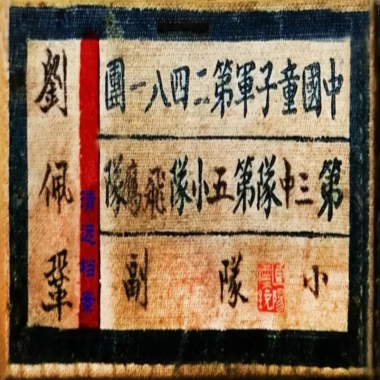 中國童子軍第二四八一團
第三中隊第五小隊飛鷹隊
小隊副
劉佩鞏
清迈档案